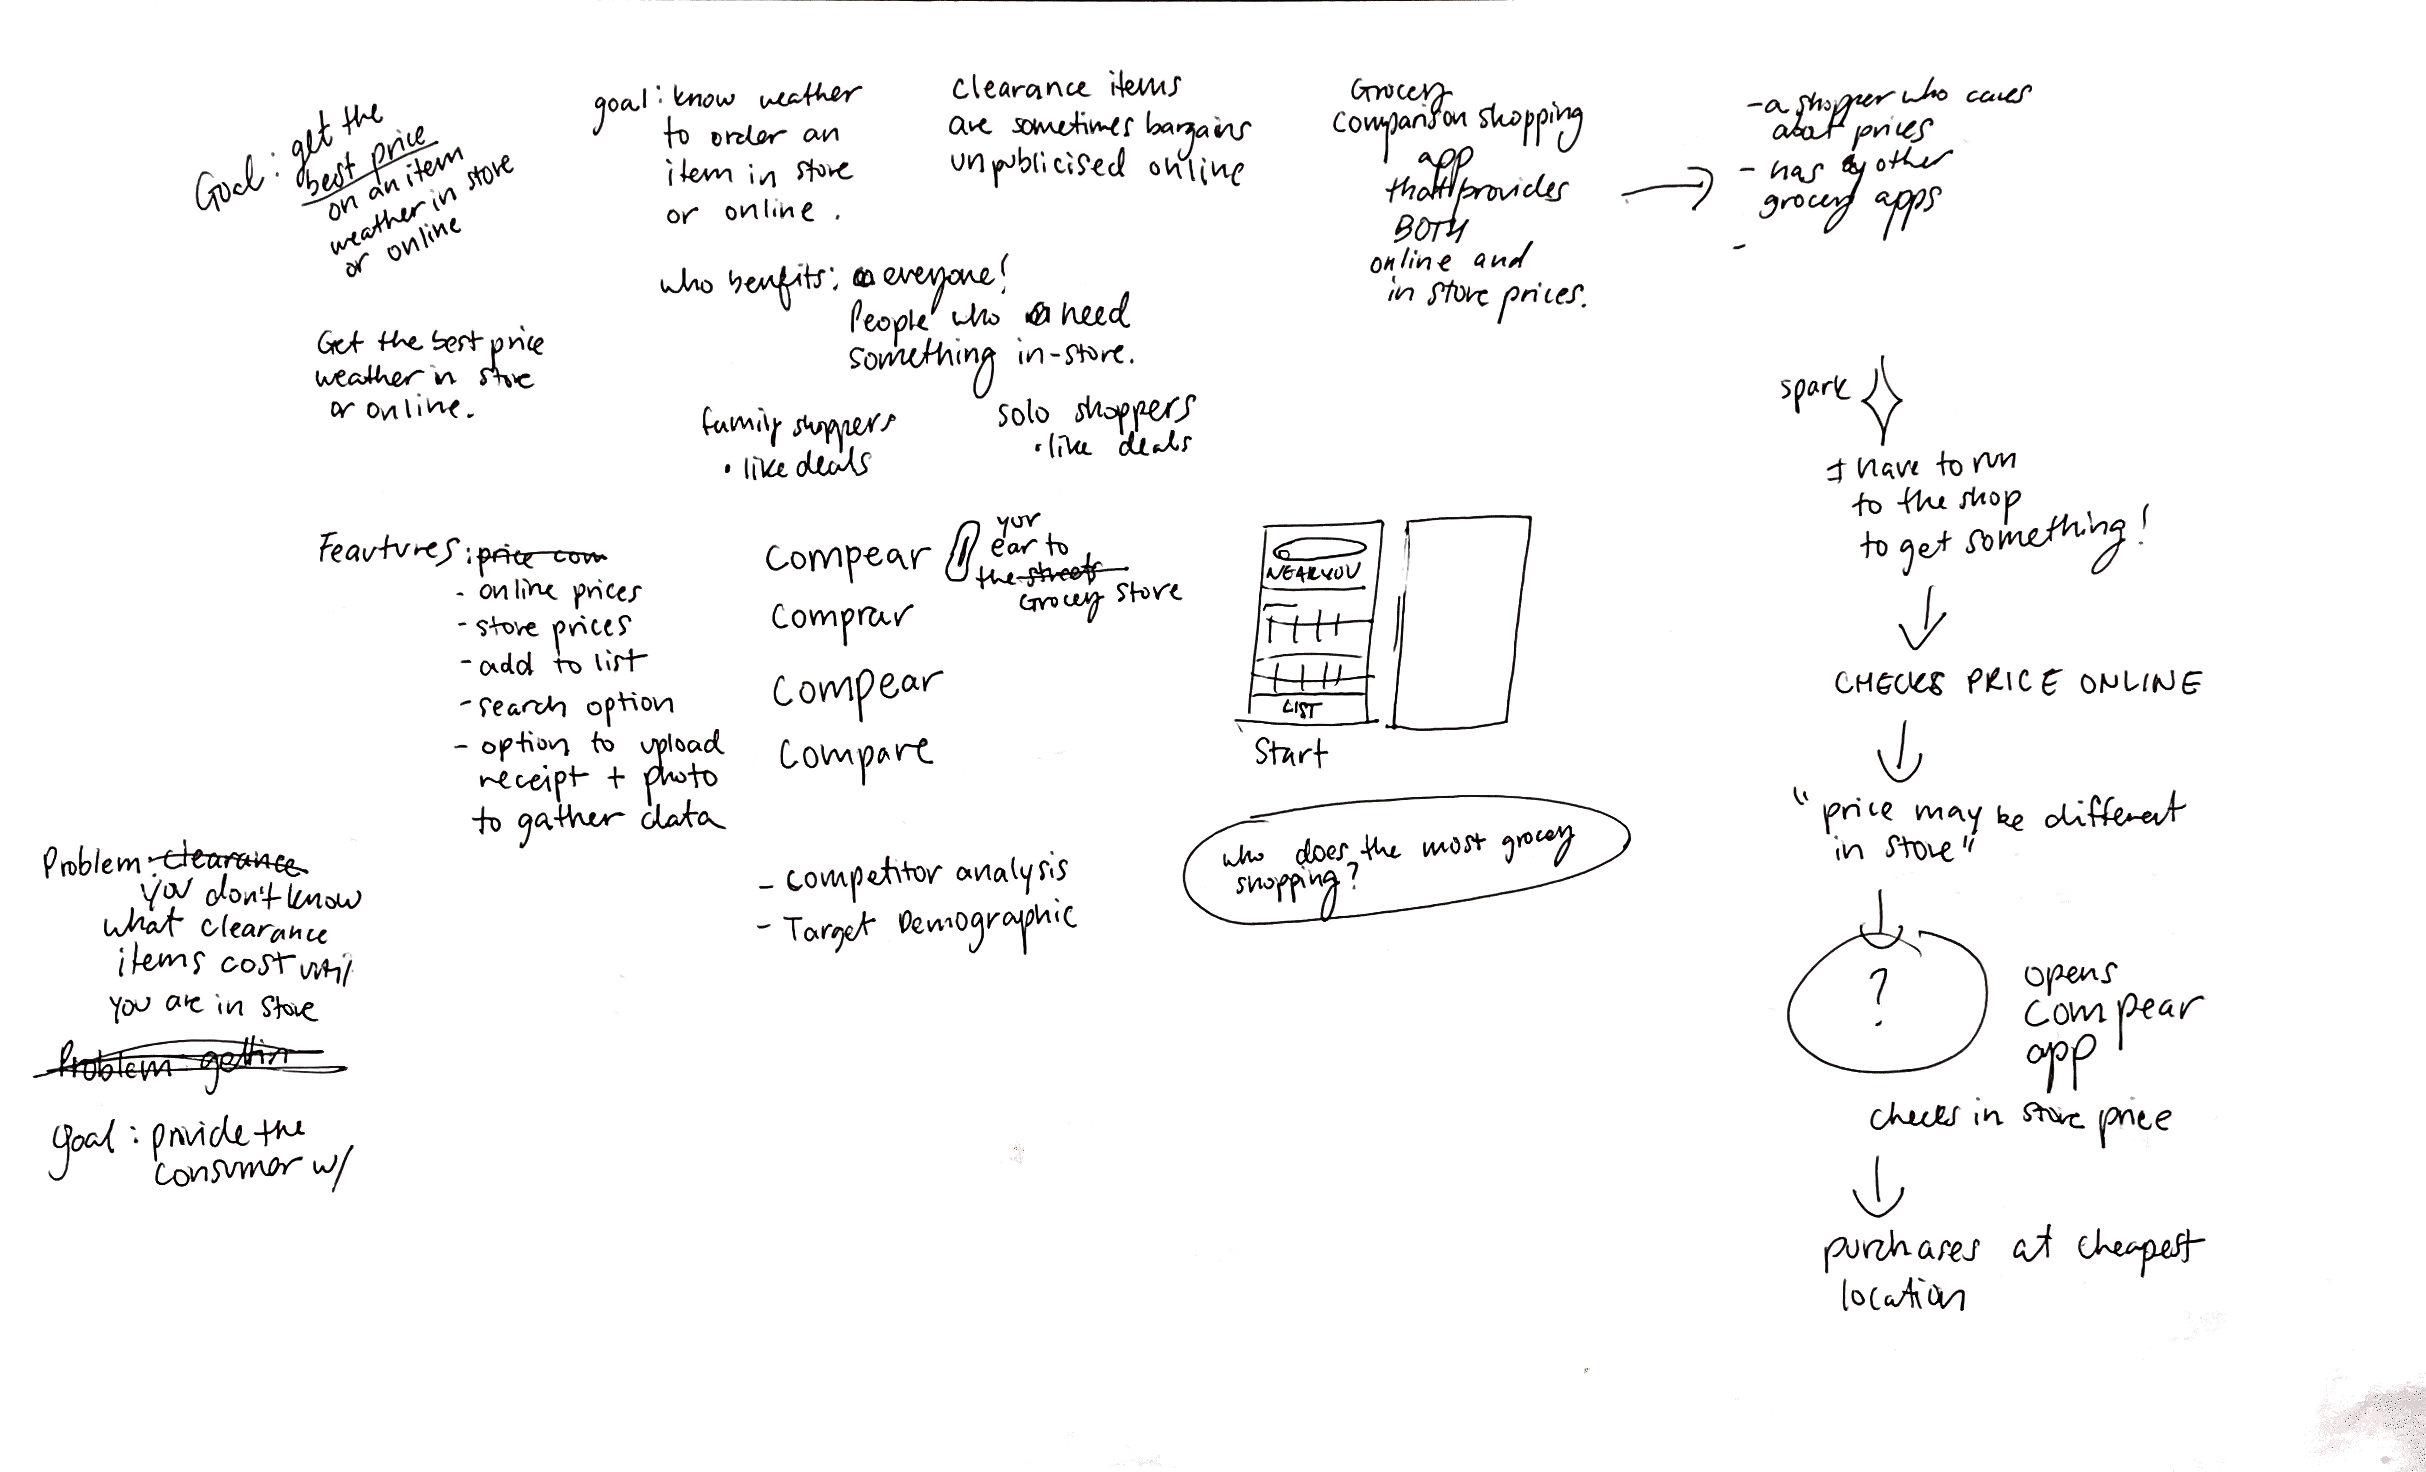 Goal: get the
best price
on an item
weather in store
or online
goal: know weather
to order an
item in store
or online.
clearance items
are sometimes bargains
unpublicised online
Grocery
comparison shopping
app
that provides
BOTH
online and
in store prices.
- a shopper who cares
about prices
- has other
grocery apps
-
who benfits: everyone!
People who need
something in-store.
Get the best price
weather in store
or online.
family shoppers
• like deals
solo shoppers
• like deals
Feautures: price com
- online prices
- store prices
- add to list
- search option
- option to upload
receipt + photo
to gather data
compear
your
ear to
the streets
Grocery store
comprar
compear
compare
NEAR YOU
LIST
Start
- competitor analysis
- Target Demographic
who does the most grocery
shopping?
Problem: clearance
you don't know
what clearance
items cost until
you are in store
Problem: gettin
goal: provide the
consumer w/
spark
I have to run
to the shop
to get something!
CHECKS PRICE ONLINE
"price may be different
in store"
?
opens
compear
app
checks in store price
purchases at cheapest
location